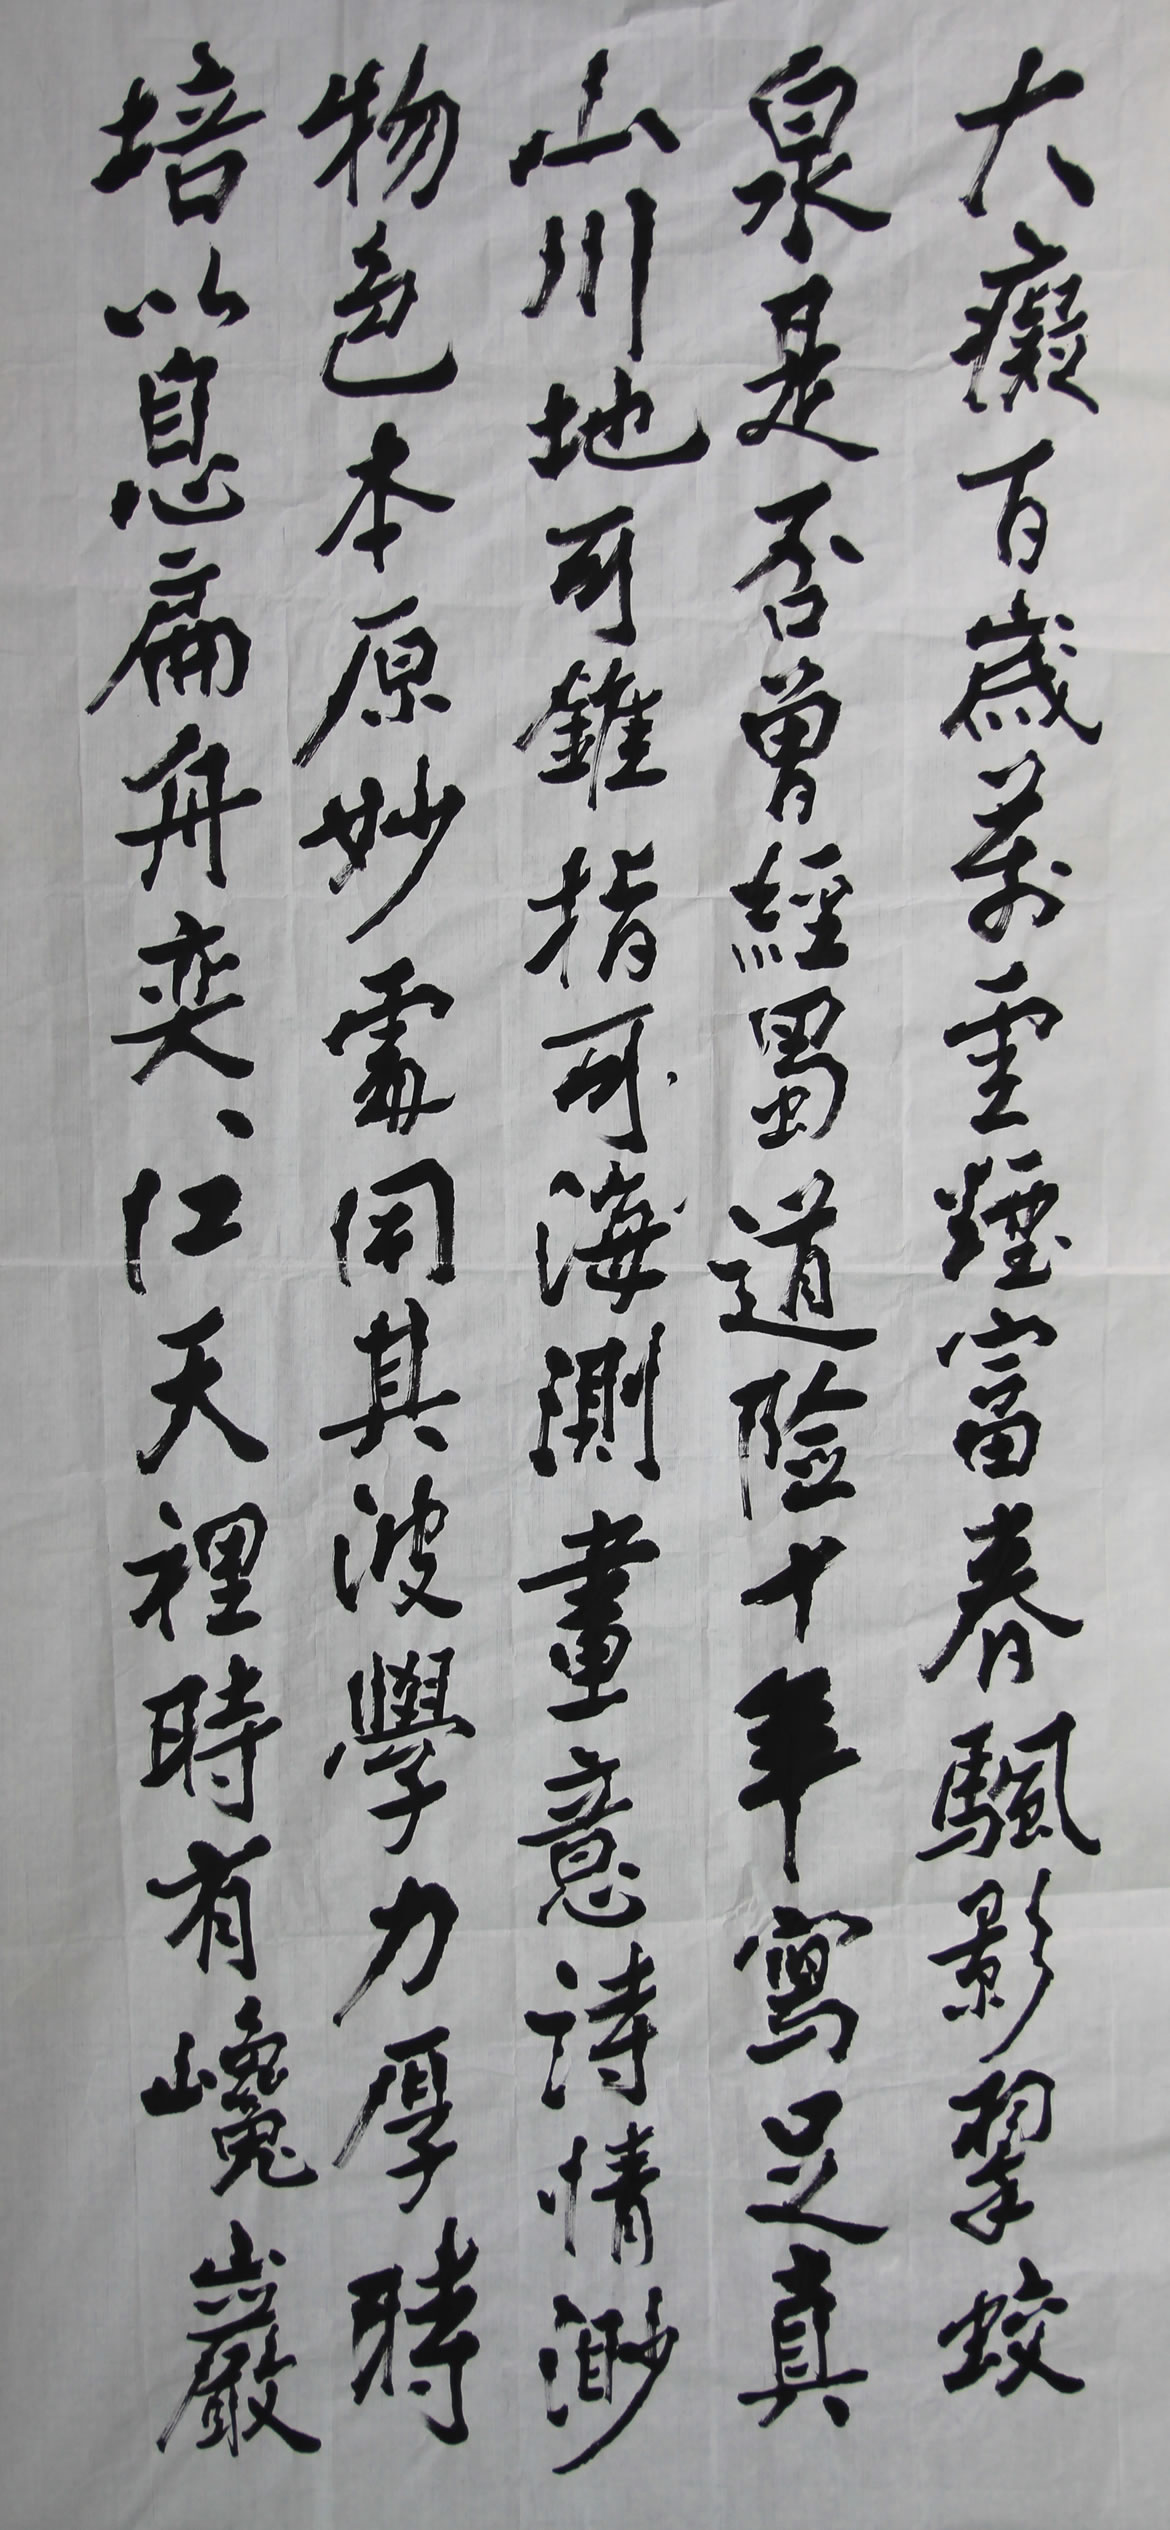 大癡百歲萬重煙富春飄影翠蛟
泉是否曾經蜀道險十年寫足真
山川地可錐指可海測畫意詩情渺
物色本原妙處同其波學力厚時
培以息扁舟奕、江天裡時有巉巖